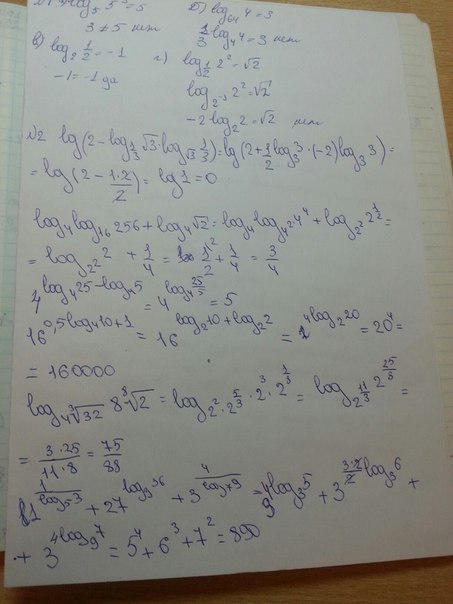 б) log₆₄ 4 = 3
3 ≠ 5 нет
1/3 log₄ 4 = 3 нет
в) log₂ 1/2 = -1
-1 = -1 да
г) log_{1/2} 2² = √2
log_{2⁻¹} 2² = √2
-2 log₂ 2 = √2 нет
№2 lg(2 - log_{1/3} √3 · log_{√3} 1/3) = lg(2 + 1/2 log₃ 3 · (-2) log₃ 3) =
= lg(2 - 1·2/2) = lg 1 = 0
log₄ log₁₆ 256 + log₄ √2 = log₄ log_{4²} 4⁴ + log_{2²} 2^{1/2} =
= log_{2²} 2 + 1/4 = 1/2 + 1/4 = 3/4
4^{log₄ 25 - log₄ 5} = 4^{log₄ 25/5} = 5
16^{0,5 log₄ 10 + 1} = 16^{log₂ 10 + log₂ 2} = 2^{4 log₂ 20} = 20⁴ =
= 160000
log_{4∛32} 8 ∛2 = log_{2²·2^{5/3}} 2³·2^{1/3} = log_{2^{11/3}} 2^{25/8} =
= 3·25/11·8 = 75/88
81^{1/log₅ 3} + 27^{log₉ 36} + 3^{4/log₇ 9} = 9^{4 log₃ 5} + 3^{3·2/2 log₃ 6} +
+ 3^{4 log₉ 7} = 5⁴ + 6³ + 7² = 890